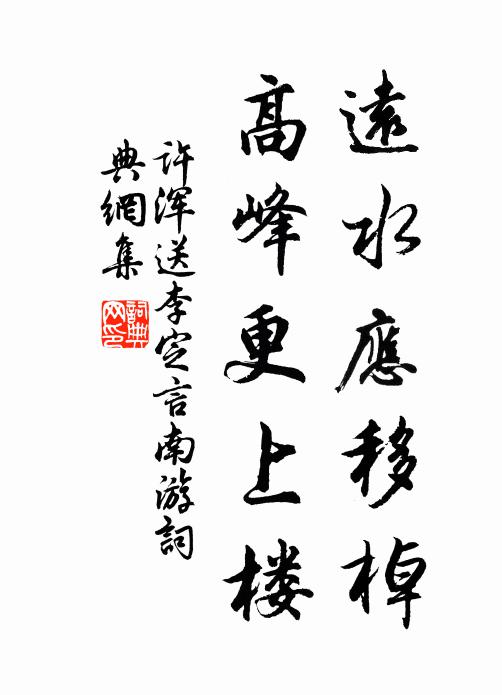 遠水應移棹
高峰更上楼
许浑送李定言南游詞
典網集
詞典
网印